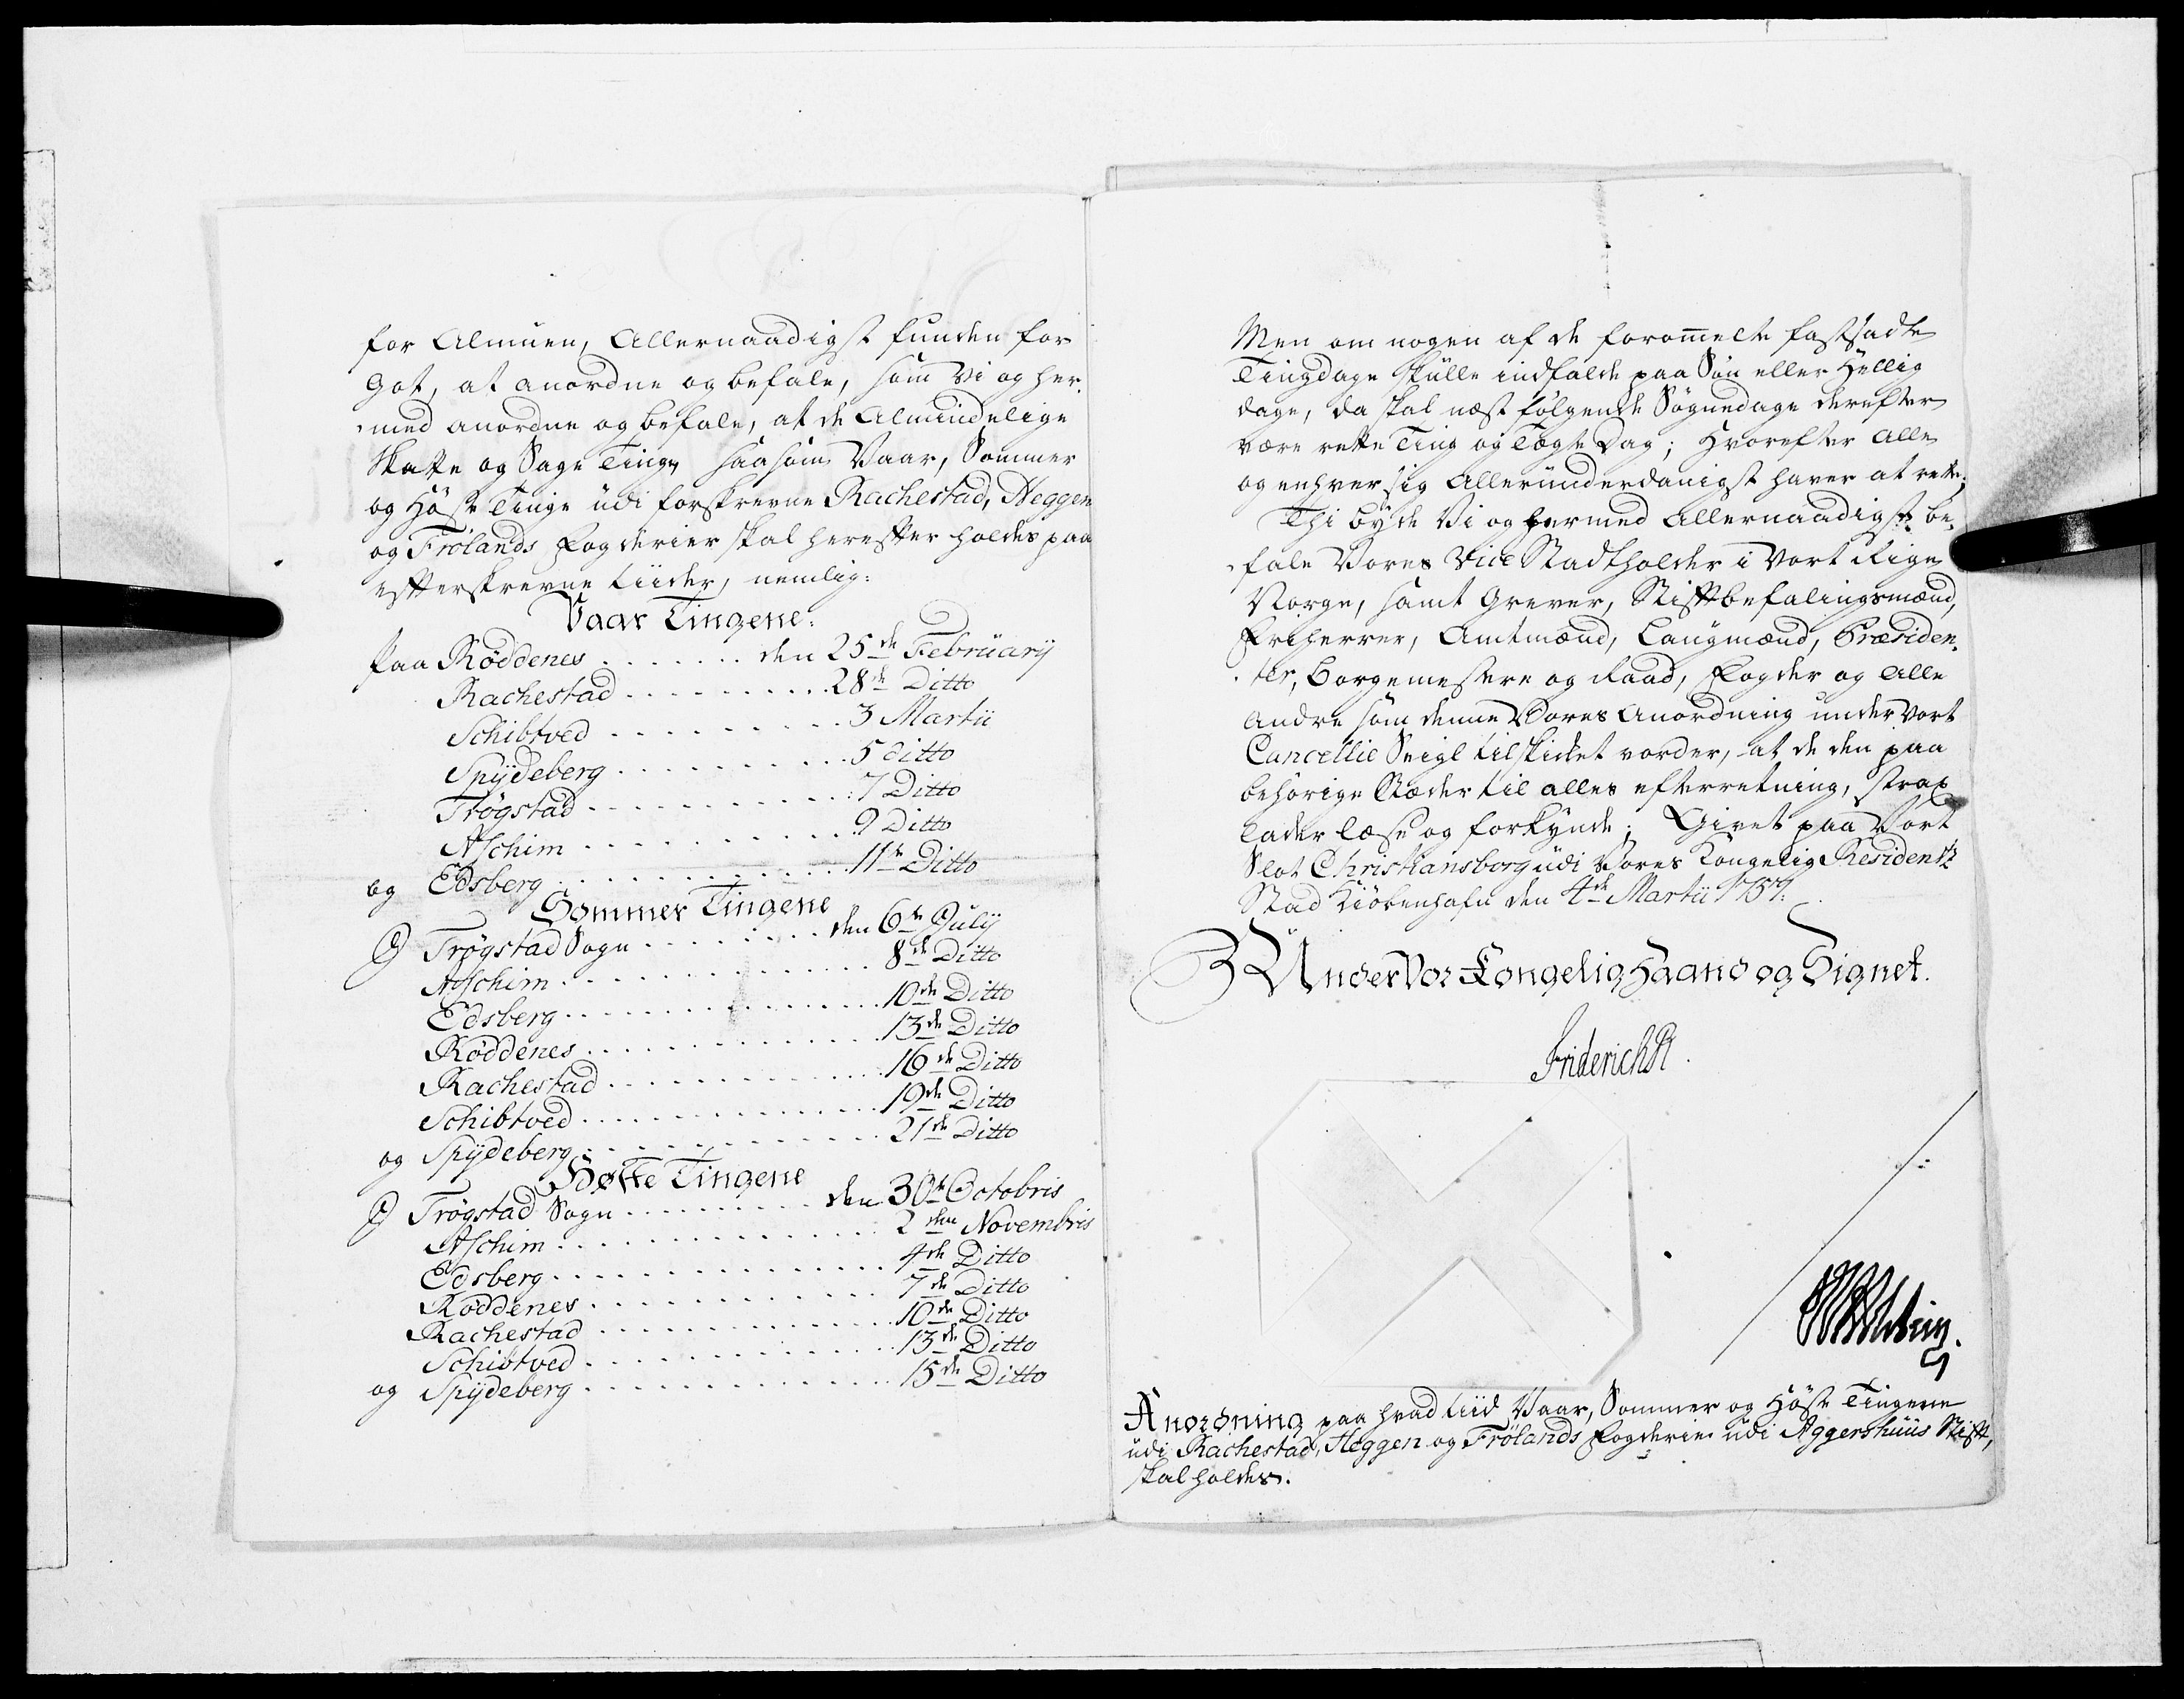 for Almuen, Allernaadigst funden for
Got, at anordne og befale, som Vi og her¬
med anordne og befale, at de Almindelige
Skatte og Sage Ting, saasom Vaar, Sommer
og Høste Tinge udi forskrevne Rachestad, Heggen
og Frølands Fogderier skal herefter holdes paa
efterskrevne tiider, nemlig:
Vaar Tingene:
Paa Røddenes . . . . . . . den 25de Februarij
Rachestad . . . . . . . . . . 28de Ditto
Schibtved . . . . . . . . . . 3 Martii
Spydeberg . . . . . . . . . . 5 ditto
Trøgstad . . . . . . . . . . 7 Ditto
Aschim . . . . . . . . . . 9 Ditto
og Edsberg . . . . . . . . . . 11te Ditto
Sommer Tingene
I Trøgstad Sogn . . . . . . . . den 6te Julij
Aschim . . . . . . . . . . 8de Ditto
Edsberg . . . . . . . . . . 10de Ditto
Røddenes . . . . . . . . . . 13de Ditto
Rachestad . . . . . . . . . . 16de Ditto
Schibtved . . . . . . . . . . 19de Ditto
og Spydeberg . . . . . . . . . . 21de Ditto
Høste Tingene
I Trøgstad Sogn . . . . . . . . . den 30te Octobris
Aschim . . . . . . . . . . 2den Novembris
Edsberg . . . . . . . . . . 4de Ditto
Røddenes . . . . . . . . . . 7de Ditto
Rachestad . . . . . . . . . . 10de Ditto
Schibtved . . . . . . . . . . 13de Ditto
og Spydeberg . . . . . . . . . . 15de Ditto
Men om nogen af de forommelte fastsadte
Tingdage skulle indfalde paa Søn eller Hellig
dage, da skal næst følgende Søgnedage derefter
være rette Ting og Tægte Dag; Hvorefter Alle
og enhver sig Allerunderdanigst haver at rette;
Thi byde Vi og hermed Allernaadigst be¬
fale Vores Vice Stadtholder i Vort Rige
Norge, samt Grever, Stiftbefalingsmænd,
Friherrer, Amtmænd, Laugmænd, Præsiden¬
ter, Borgemestere og Raad, Fogder og Alle
andre som denne Vores Anordning under Vort
Cancellie Seigl tilskicket vorder, at de den paa
behørige Stæder til alles efterretning, strax
lader læse og forkynde; Givet paa Vort
Slot Christiansborg udi Vores Kongelig Residentz
Stad Kiöbenhafn den 4de Martii 1757.
Under Vor Kongelig Haand og Signet.
Friderich R
Anordning paa hvad tiid Vaar, Sommer og Høste Tingene
udi Rachestad, Heggen og Frølands Fogderie udi Aggershuus Stift,
skal holdes.